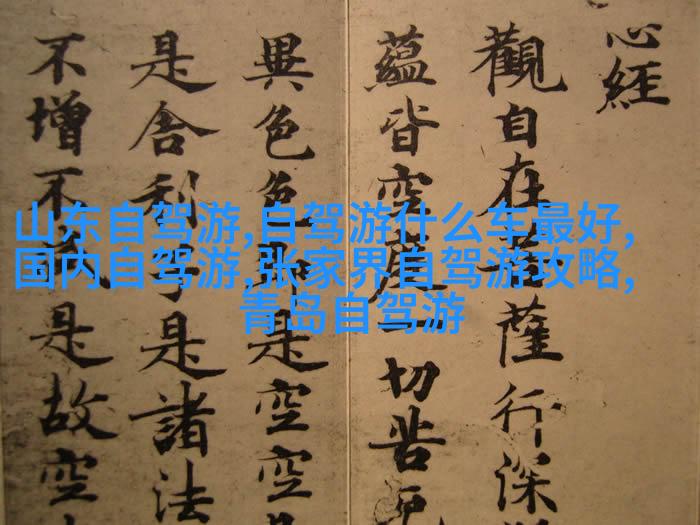 心經
觀自在菩薩行深
蘊皆空度一切苦厄
異色色即是空空
是舍利子是諸法
不增不減是故空
山东自驾游,自驾游什么车最好,
国内自驾游,张家界自驾游攻略,
青岛自驾游